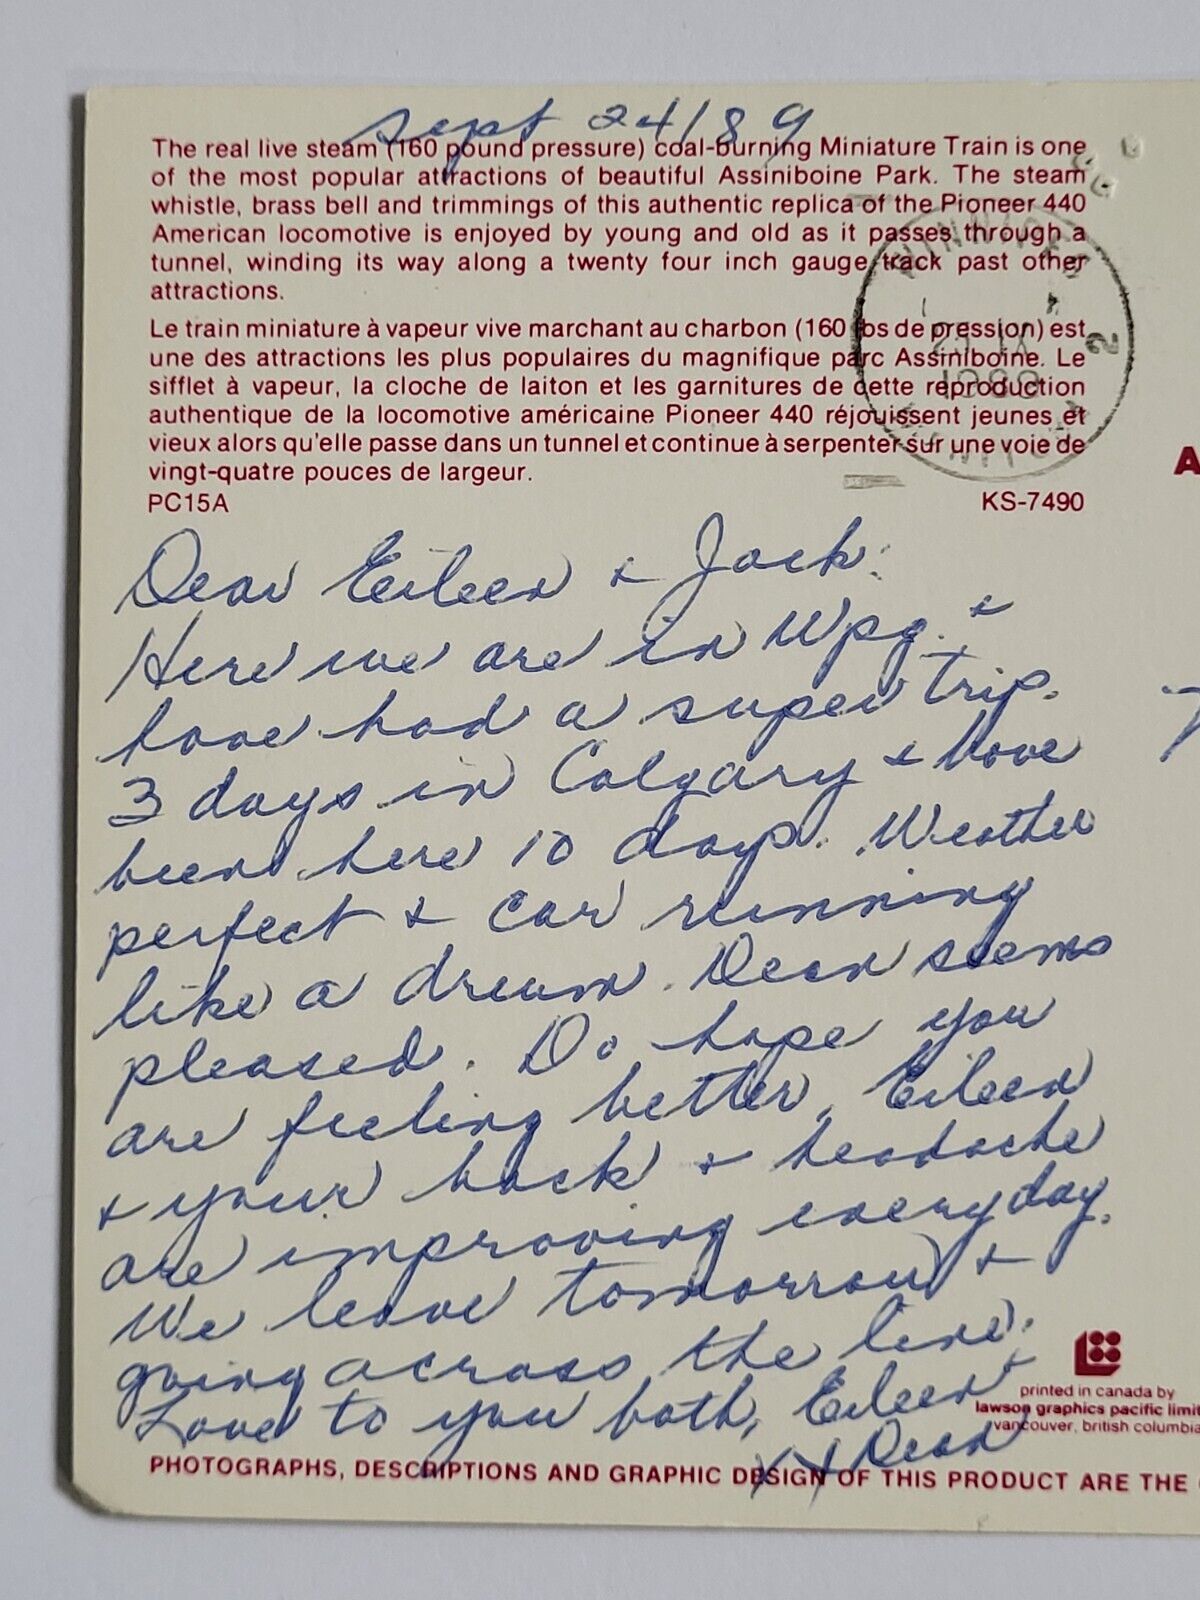 Sept 24/89
The real live steam (160 pound pressure) coal-burning Miniature Train is one
of the most popular attractions of beautiful Assiniboine Park. The steam
whistle, brass bell and trimmings of this authentic replica of the Pioneer 440
American locomotive is enjoyed by young and old as it passes through a
tunnel, winding its way along a twenty four inch gauge track past other
attractions.
Le train miniature à vapeur vive marchant au charbon (160 lbs de pression) est
une des attractions les plus populaires du magnifique parc Assiniboine. Le
sifflet à vapeur, la cloche de laiton et les garnitures de cette reproduction
authentique de la locomotive américaine Pioneer 440 réjouissent jeunes et
vieux alors qu'elle passe dans un tunnel et continue à serpenter sur une voie de
vingt-quatre pouces de largeur.
PC15A KS-7490
WINNIPEG
IX
1989
2
MANITOBA
Dear Eileen & Jack:
Here we are in Wpg. &
have had a super trip.
3 days in Calgary & have
been here 10 days. Weather
perfect & car running
like a dream. Dean seems
pleased. Do hope you
are feeling better, Eileen
& your back & headache
are improving everyday.
We leave tomorrow &
going across the line.
Love to you both, Eileen &
xx Dean
printed in canada by
lawson graphics pacific limit
vancouver, british columbia
PHOTOGRAPHS, DESCRIPTIONS AND GRAPHIC DESIGN OF THIS PRODUCT ARE THE
A